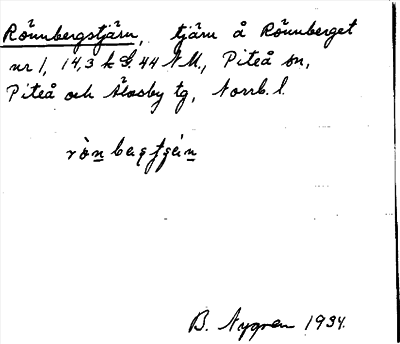 Rönnbergstjärn, tjärn å Rönnberget
nr 1, 14,3 k S. 44 N M., Piteå sn,
Piteå och Älvsby tg, Norrb. l.
B. Nygren 1934.